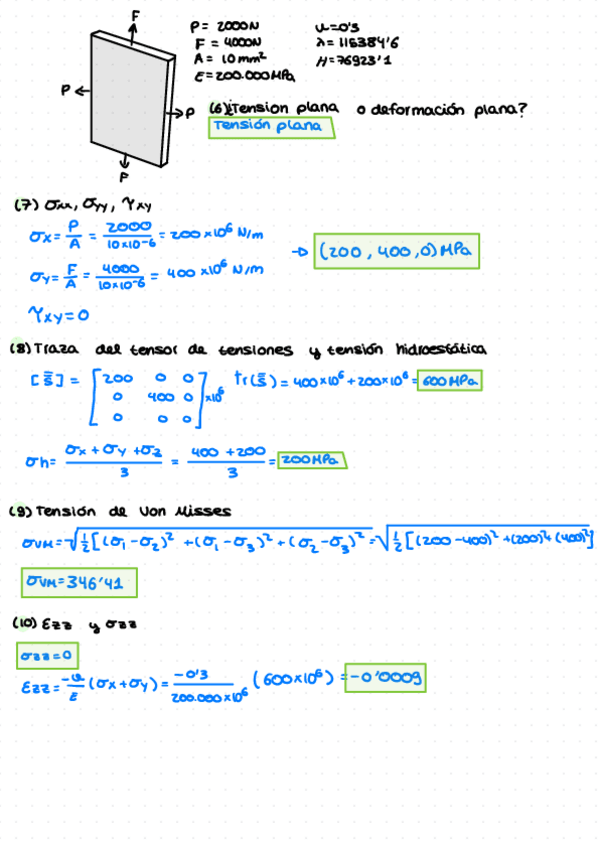 F
P = 2000N
υ=0'3
F = 4000N
λ = 115384'6
A = 10mm²
μ=76923'1
E=200.000MPa
P
P
F
(6)¿Tension plana o deformación plana?
Tensión plana
(7) σxx, σyy, τxy
σx= P/A = 2000/10×10-6 = 200×10⁶ N/m
→ (200, 400,0) MPa
σy= F/A = 4000/10×10-6 = 400 ×10⁶ N/m
τxy=0
(8) Traza del tensor de tensiones y tensión hidroestática
[s̄̄] = [200 0 0
0 400 0
0 0 0] ×10⁶
tr(s̄̄) = 400×10⁶+200×10⁶ = 600 MPa
σh= σx + σy +σz / 3 = 400 +200 / 3 = 200MPa
(9) Tensión de Von Misses
σVM=√½[(σ₁-σ₂)² +(σ₁-σ₃)²+(σ₂-σ₃)² = √½[(200-400)²+(200)²+(400)²]
σVM=346'41
(10) εzz y σzz
σzz=0
εzz= -υ/E (σx+σy) = -0'3/200.000×10⁶ (600×10⁶) = -0'0009